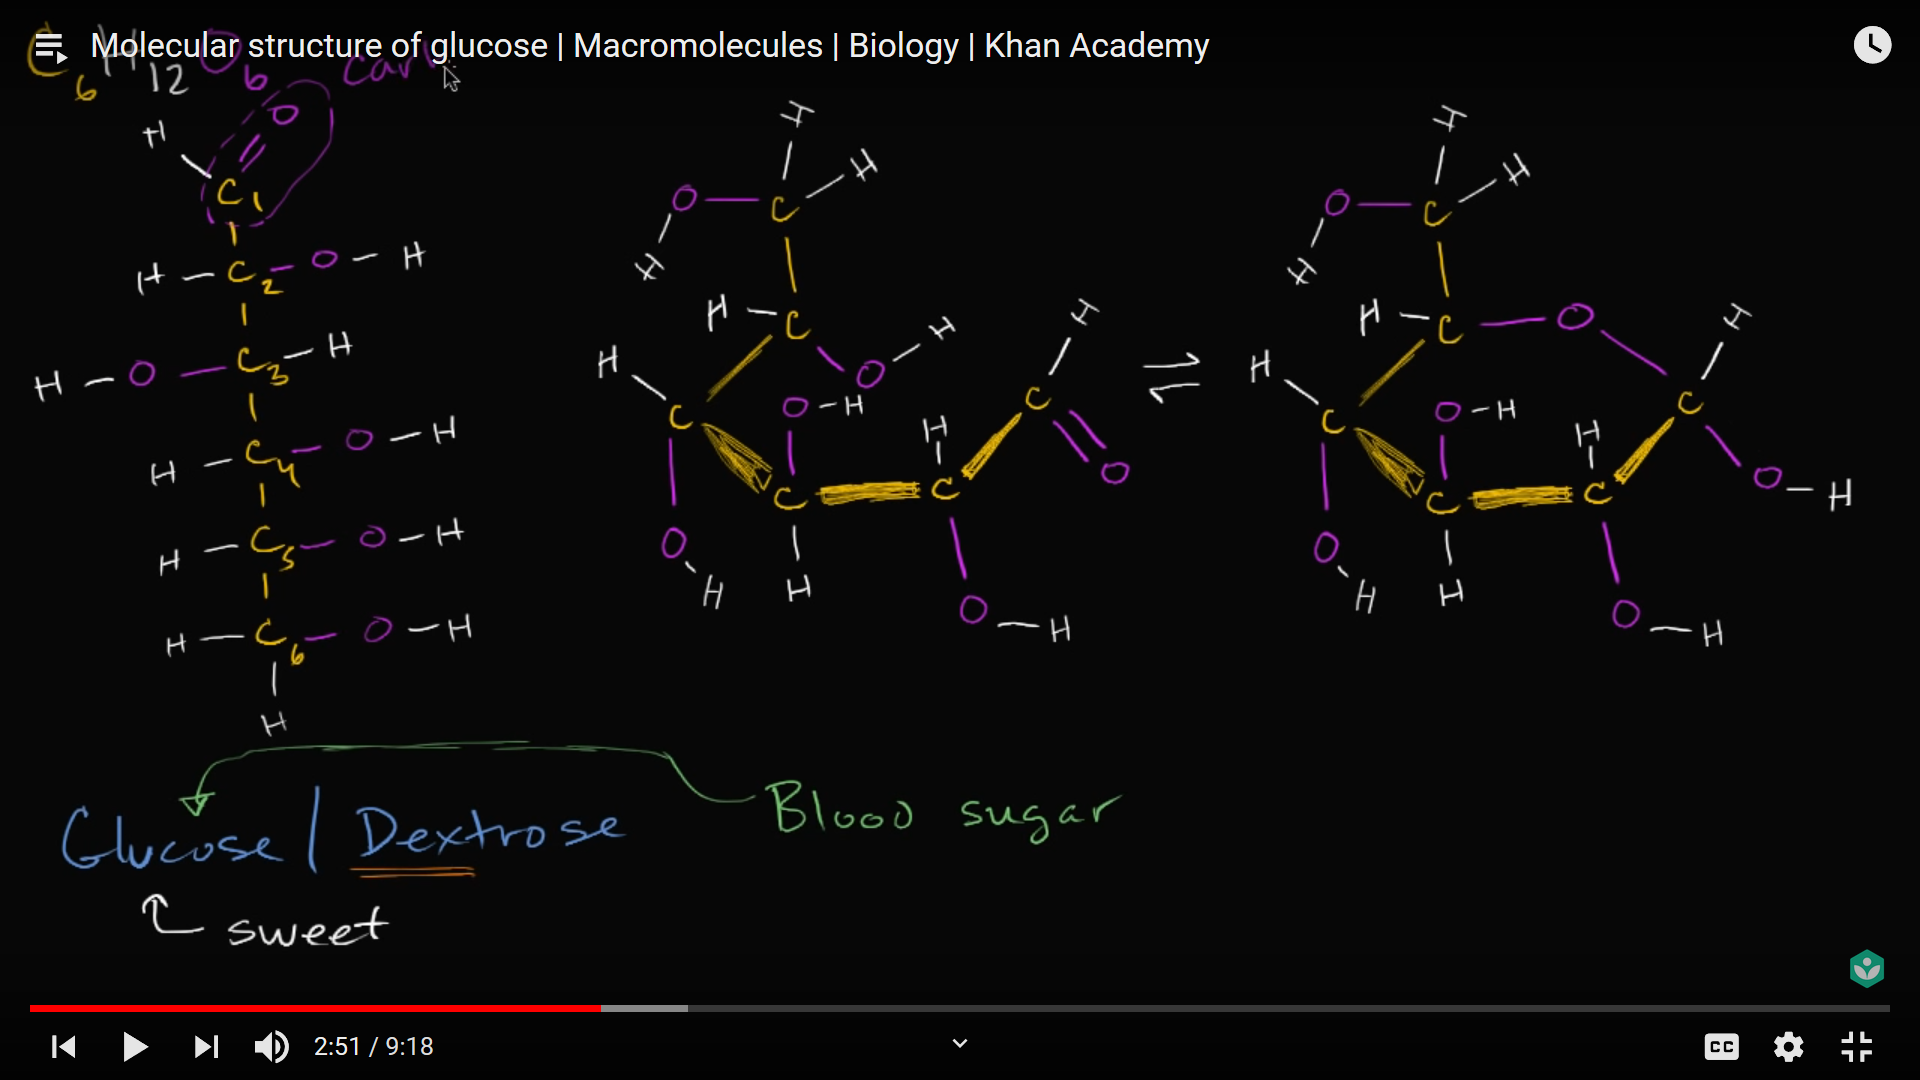 Molecular structure of glucose | Macromolecules | Biology | Khan Academy
C6H12O6
H O
C1
H - C2 - O - H
H - O - C3 - H
H - C4 - O - H
H - C5 - O - H
H - C6 - O - H
H
H
O C H
H
H C
H O H
C O - H
H C H
O
C C
O H H
O - H
H
O C H
H
H C O
H H
C O - H
H C
C C O - H
O H H
O - H
Glucose / Dextrose
Blood sugar
sweet
2:51 / 9:18
CC